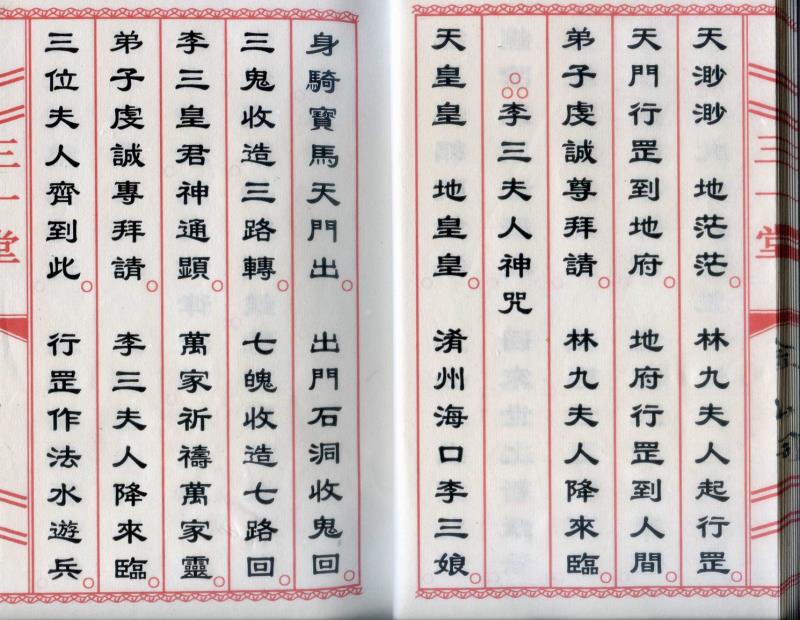 天渺渺 地茫茫 林九夫人起行罡
天門行罡到地府 地府行罡到人間
弟子虔誠尊拜請 林九夫人降來臨
李三夫人神咒
天皇皇 地皇皇 淆州海口李三娘
身騎寶馬天門出 出門石洞收鬼回
三鬼收造三路轉 七魄收造七路回
李三皇君神通顯 萬家祈禱萬家靈
弟子虔誠專拜請 李三夫人降來臨
三位夫人齊到此 行罡作法水遊兵
三一堂